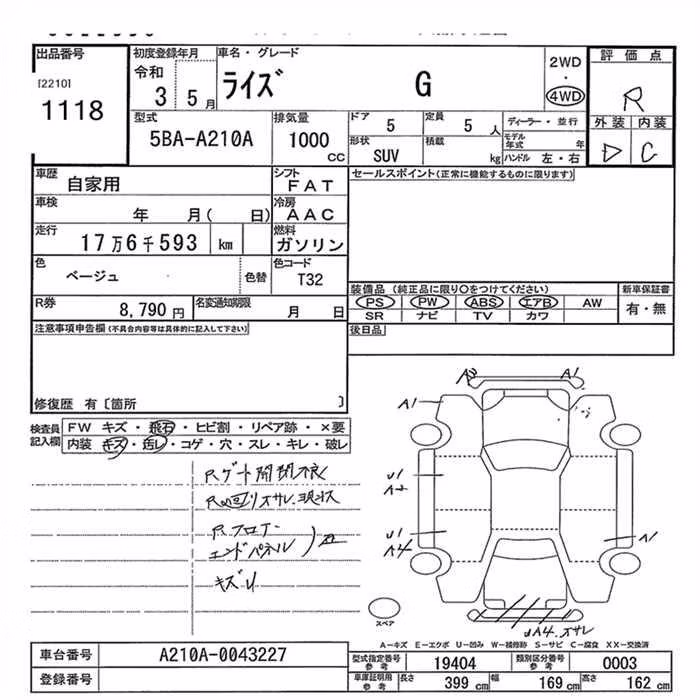 出品番号
[2210]
1118
初度登録年月
令和
3 5月
車名・グレード
ライズ G
2WD
・
4WD
評価点
R
外装 内装
D C
型式
5BA-A210A
排気量
1000
CC
ドア
5
定員
5人
ディーラー・並行
形状
SUV
積載
kg
モデル年式 年
ハンドル 左・右
車歴
自家用
シフト
FAT
車検
年 月( 日)
冷房
AAC
走行
17万6千593 km
燃料
ガソリン
色
ベージュ
色替
色コード
T32
R券
8,790円
名変通知期限
月 日
セールスポイント(正常に機能するものに限ります)
装備品 (純正品に限り○をつけてください)
PS PW ABS エアB AW
SR ナビ TV カワ
新車保証書
有・無
後日品
注意事項申告欄(不具合内容等は具体的に記入して下さい)
修復歴 有〔箇所 〕
検査員
記入欄
FW キズ・飛石・ヒビ割・リペア跡・×要
内装 キズ・汚し・コゲ・穴・スレ・キレ・破レ
Rゲート開閉不良
Rフロアー
エンドパネル
キズU
A1
A1
U1
A2
U1
A4
A1
スペア
A−キズ E−エクボ U−凹み W−補修跡 S−サビ C−腐食 XX−交換済
車台番号
A210A-0043227
登録番号
型式指定番号
参考
19404
類別区分番号
参考
0003
車庫証明用
参考
長さ 399cm
幅 169cm
高さ 162cm